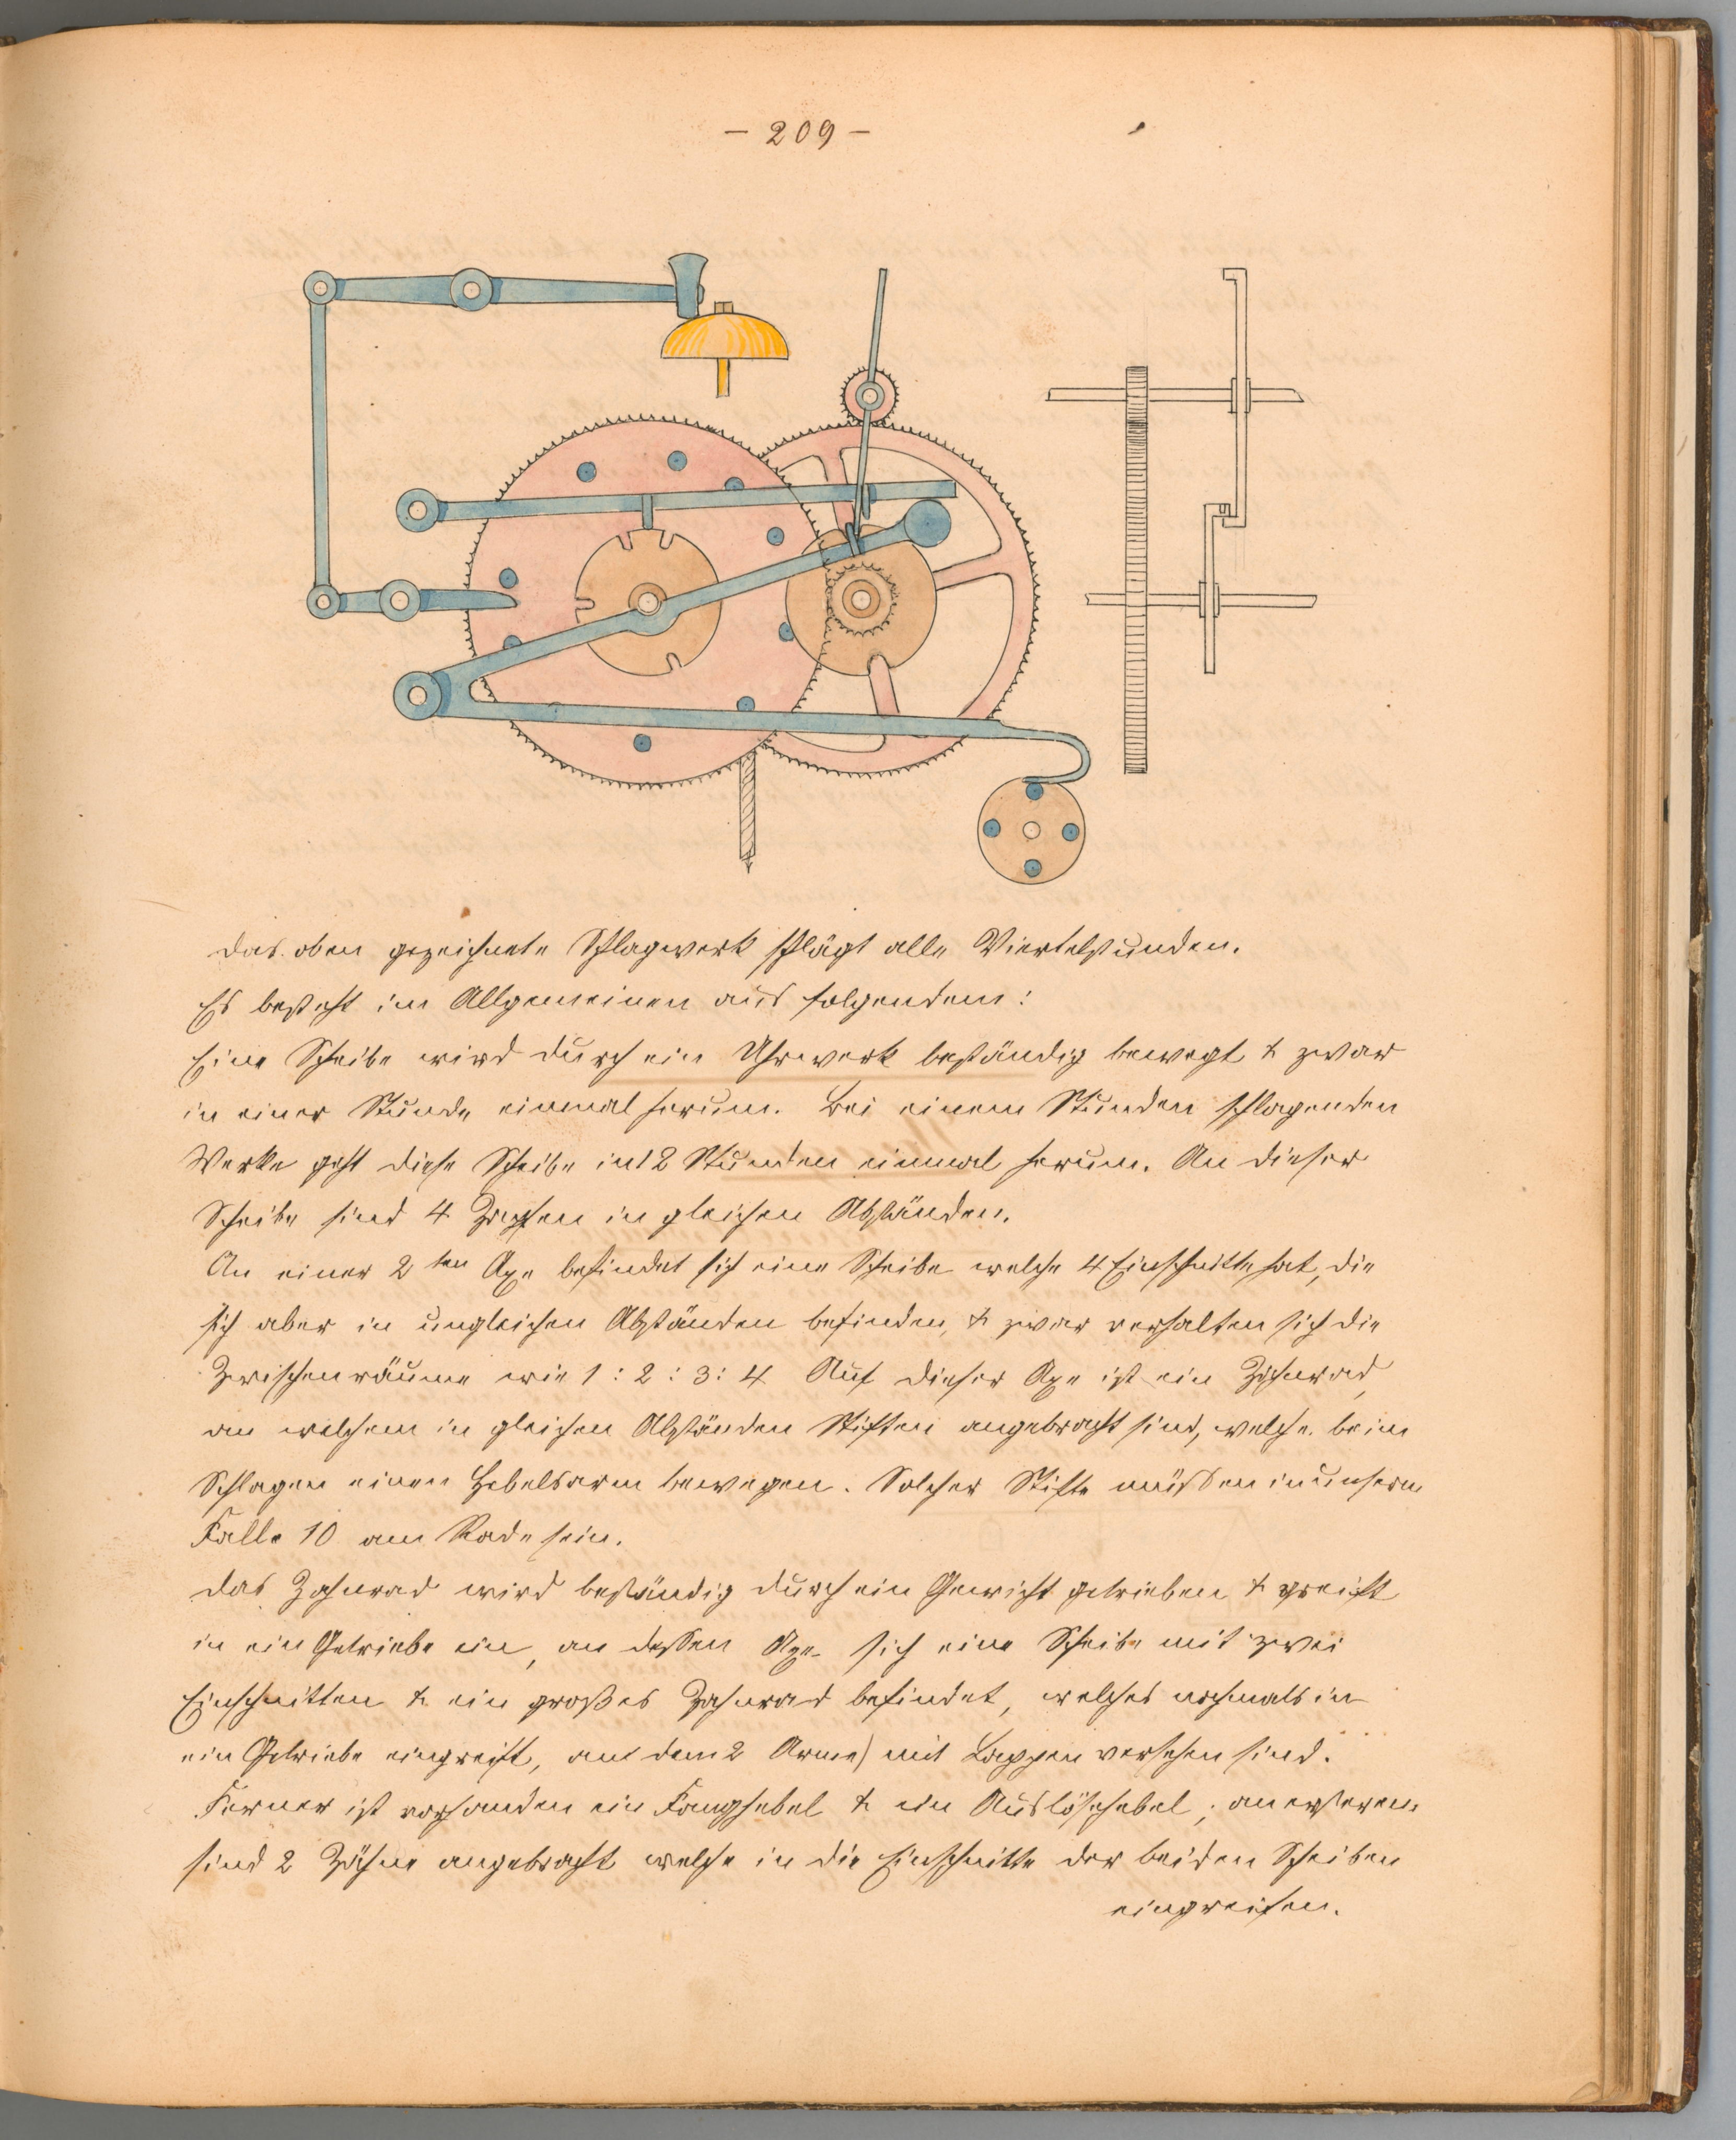 - 209 -
Das oben gezeichnete Schlagwerk schlägt alle Viertelstunden.
Es besteht im Allgemeinen aus folgendem:
Eine Scheibe wird durch ein Uhrwerk beständig bewegt & zwar
in einer Stunde einmal herum. Bei einem Stunden schlagenden
Werke geht diese Scheibe in 12 Stunden einmal herum. An dieser
Scheibe sind 4 Zapfen in gleichen Abständen.
An einer 2ten Axe befindet sich eine Scheibe welche 4 Einschnitte hat, die
sich aber in ungleichen Abständen befinden, & zwar verhalten sich die
Zwischenräume wie 1 : 2 : 3 : 4 Auf dieser Axe ist ein Zahnrad,
an welchem in gleichen Abständen Stiften angebracht sind, welche beim
Schlagen einen Hebelsarm bewegen. Solcher Stifte müssen in unserm
Falle 10 am Rade sein.
Das Zahnrad wird beständig durch ein Gewicht getrieben & greift
in ein Getriebe ein, an dessen Axe sich eine Scheibe mit zwei
Einschnitten & ein großes Zahnrad befindet, welches nochmals in
ein Getriebe eingreift, an dem 2 Arme) mit Lappen versehen sind.
Ferner ist vorhanden ein Fanghebel & ein Auslöshebel; an ersteren
sind 2 Zähne angebracht welche in die Einschnitte der beiden Scheiben
eingreifen.